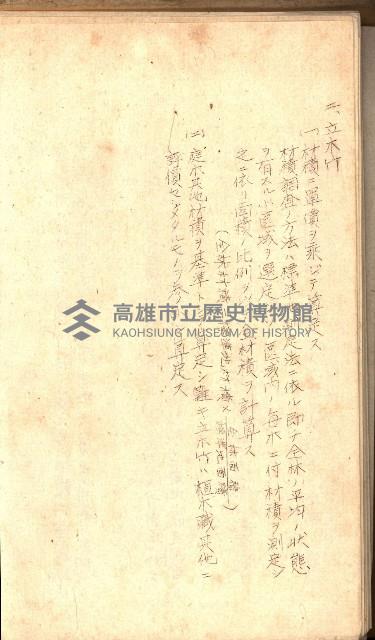 二、立木竹
(一)材積ニ單價ヲ乘ジテ算定ス
材積調査ノ方法ハ標準地測定法ニ依ル即チ全林ノ平均ノ狀態
ヲ有スル小區域ヲ選定シ區域內ノ每木ニ付材積ヲ測定シ
之ニ依リ面積ノ比例ヲ以テ材積ヲ計算ス
(二)庭木其他材積ヲ基準トシ算定シ難キ立木竹ハ植木職其他ニ
評價セシメタルモノヲ參算定ス
高雄市立歷史博物館
KAOHSIUNG MUSEUM OF HISTORY